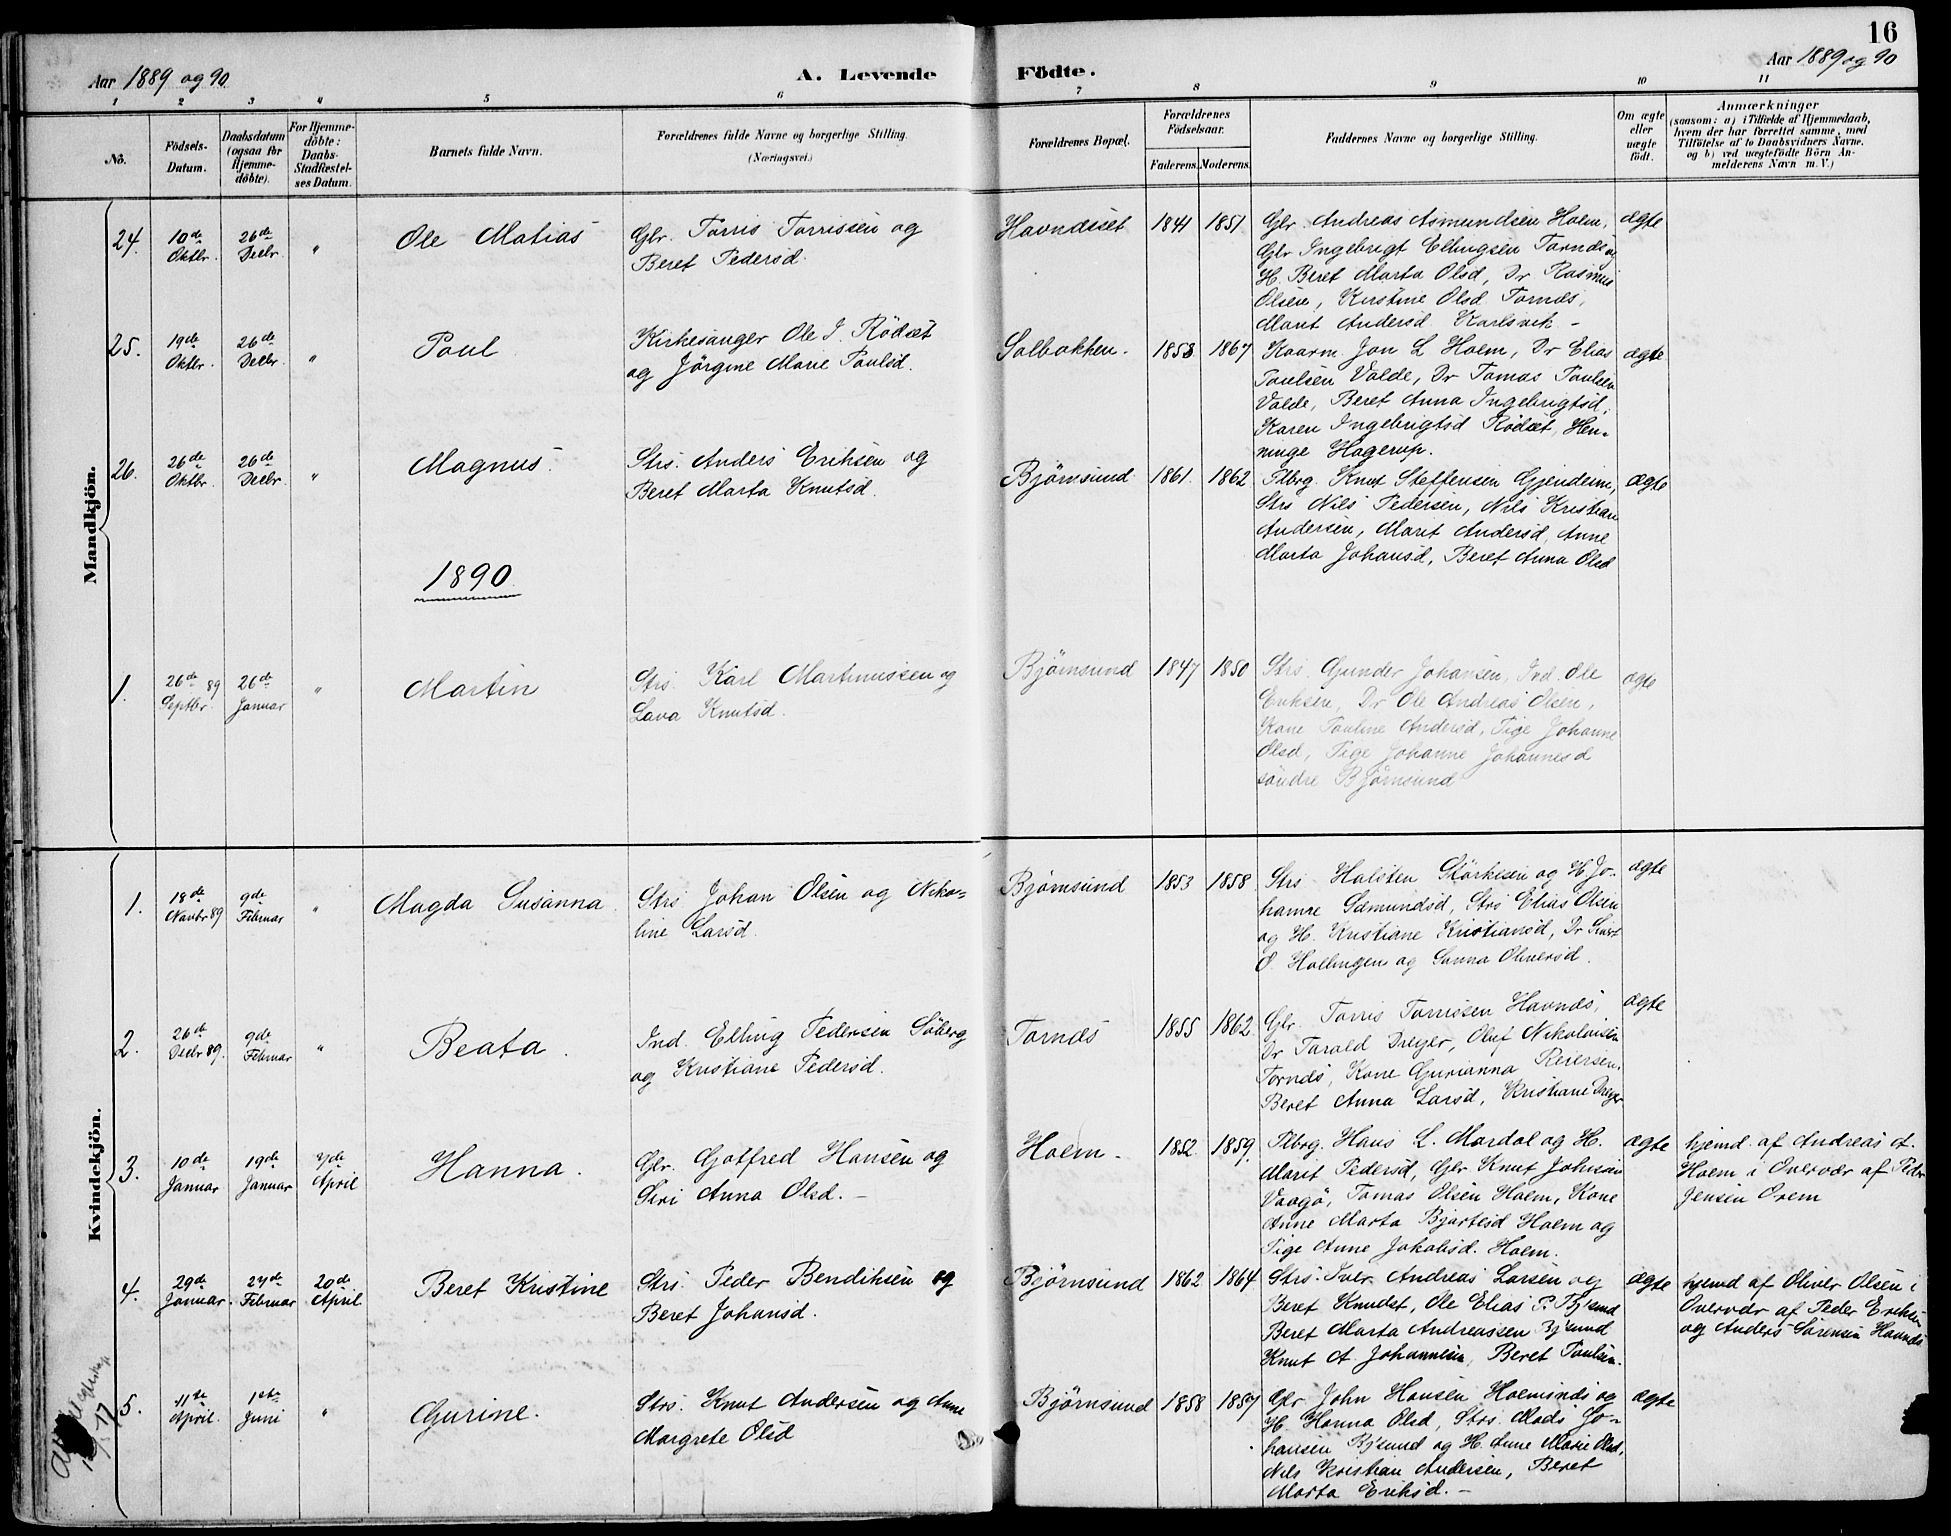 16
Aar 1889 og 90
A. Levende Födte.
Aar 1889 og 90
1 2 3 4 5 6 7 8 9 10 11
No.
Födsels-
Datum.
Daabsdatum
(ogsaa for
Hjemme-
döbte).
For Hjemme-
döbte:
Daabs-
Stadfæstel-
ses Datum.
Barnets fulde Navn.
Forældrenes fulde Navne og borgerlige Stilling.
(Næringsvei.)
Forældrenes Bopæl.
Forældrenes
Födselsaar.
Faderens. Moderens.
Faddernes Navne og borgerlige Stilling.
Om ægte
eller
uægte
født.
Anmærkninger
(saasom: a) i Tilfælde af Hjemmedaab,
hvem der har forrettet samme, med
Tilføielse af to Daabsvidners Navne,
og b) ved uægtefödte Börn An-
melderens Navn m. V.)
Mandkjön.
24.
10de
Oktbr.
26de
Decbr.
"
Ole Matias
Gbr. Torris Torrissen og
Beret Pedersd.
Havndsset
1841
1851
Gbr. Andreas Asmundsen Holm,
Gbr Ingebrigt Ellingsen Tornes og
H. Beret Marta Olsd, Dr Rasmus
Olsen, Kirstine Olsd Tornes,
Marit Andersd Karlsvik -
ægte
25.
19de
Oktbr.
26de
Decbr.
"
Poul
Kirkesanger Ole I. Rödset
og Jörgine Marie Paulsd.
Solbakken.
1853
1867
Kaarm. Jon L Holm, Dr Elias
Paulsen Valde, Dr Tomas Paulsen
Valde, Beret Anna Ingebrigtsd,
Karen Ingebrigtsd Rödset, Hen-
ninge Hagerup.
ægte
26.
26de
Oktbr.
26de
Decbr.
"
Magnus.
Strs. Anders Eriksen og
Beret Marta Knutsd.
Björnsund
1861.
1862
Plbrg. Knut Steffensen Gjendeim,
Strs Nils Pedersen, Nils Kristian
Andersen, Marit Andersd, Anne
Marta Johansd, Beret Anna Olsd
ægte
1890
1.
26de 89
Septbr.
26de
Januar
"
Martin
Strs. Karl Martinussen og
Lava Knutsd.
Björnsund
1847
1850
Strs. Gunder Johansen, Ind. Ole
Eriksen, Dr Ole Andreas Olsen,
Kone Pauline Andersd, Pige Johanne
Olsd, Pige Johanne Johannesd
söndre Björnsund
ægte
Kvindekjön.
1.
18de
Novbr 89
9de
Februar
"
Magda Susanna
Strs. Johan Olsen og Niko-
line Larsd.
Björnsund
1853
1858
Strs Halsten Störkesen og H. Jo-
hanne Sæmundsd, Strs Elias Olsen
og H. Kristiane Kristiansd, Dr Sivert
O. Hollingen og Sanna Oliversd.
ægte
2.
26de
Decbr 89.
9de
Februar
"
Beata.
Ind. Elling Pedersen Söberg
og Kristiane Pedersd.
Tornes
1855
1862
Gbr. Torris Torrissen Havnes,
Dr Tarald Dreyer, Oluf Nikolaisen
Tornes, Kone Gurianna Reiersen,
Beret Anna Larsd, Kristiane Dreyer
ægte
3.
10de
Januar
19de
Januar
7de
April
Hanna.
Gbr. Gotfred Hansen og
Siri Anna Olsd. -
Holm.
1852
1859
Plbrg. Hans L. Mardal og H.
Marit Pedersd, Gbr Knut Johnsen
Vaagö, Tomas Olsen Holm, Kone
Anne Marta Bjartesd Holm og
Pige Anne Jakobsd. Holm.
ægte
hjemd af Andreas A.
Holm i Overvær af Peder
Jensen Orem
4.
29de
Januar.
27de
Februar
20de
April
Beret Kristine
Strs. Peder Bendiksen og
Beret Johansd.
Björnsund
1862
1864
Strs. Iver Andreas Larsen og
Beret Knudst, Ole Elias P. Bj'sund
Beret Marta Andreassen Bj'sund
Knut A. Johannesen, Beret Poulsen.
ægte
hjemd af Oliver Olsen i
Overvær af Peder Eriksen
og Anders Sörensen Havnes
5.
11te
April.
1ste
Juni
"
Gurine.
Strs. Knut Andersen og Anne
Margrete Olsd
Björnsund
1858
1857
Gbr John Hansen Holmsnes og
H. Hanna Olsd, Strs. Mads Jo-
hansen Bj'sund og H. Anne Marie Olsd,
Nils Kristian Andersen, Beret
Marta Eriksd. -
ægte